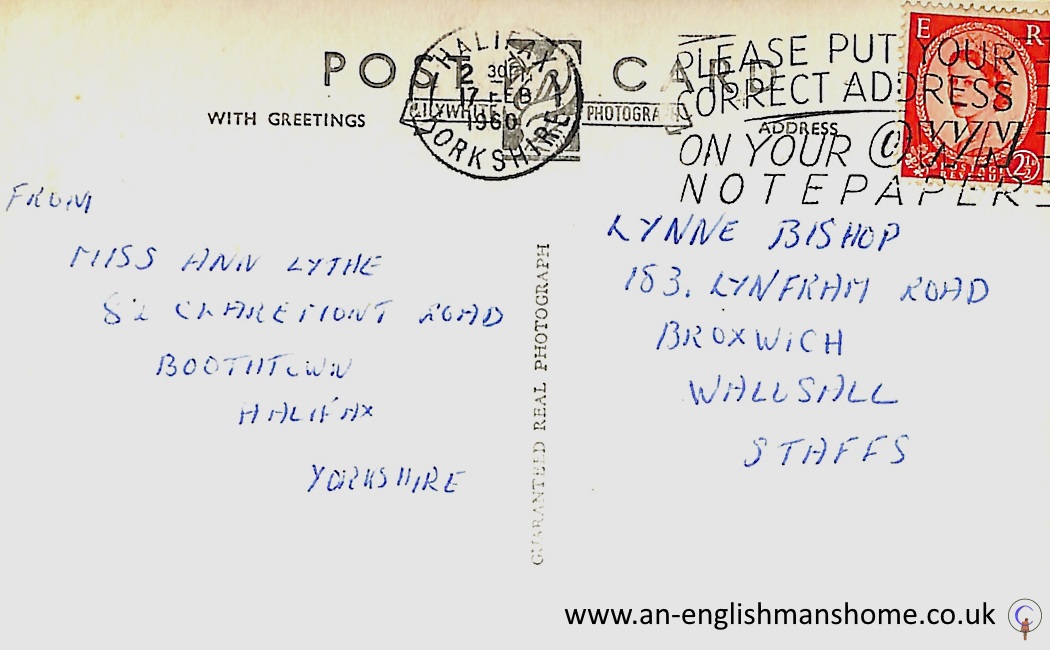 POST CARD
WITH GREETINGS
LILYWHITE PHOTOGRAPH
ADDRESS
HALIFAX
2 30PM
17 FEB
1960
YORKSHIRE
PLEASE PUT YOUR
CORRECT ADDRESS
ON YOUR OWN
NOTEPAPER
E R
POSTAGE
REVENUE
2½D
FROM
MISS ANN LYTHE
82 CLAREMONT ROAD
BOOTHTOWN
HALIFAX
YORKSHIRE
GUARANTEED REAL PHOTOGRAPH
LYNNE BISHOP
183. LYNFRAM ROAD
BROXWICH
WALLSALL
STAFFS
www.an-englishmanshome.co.uk